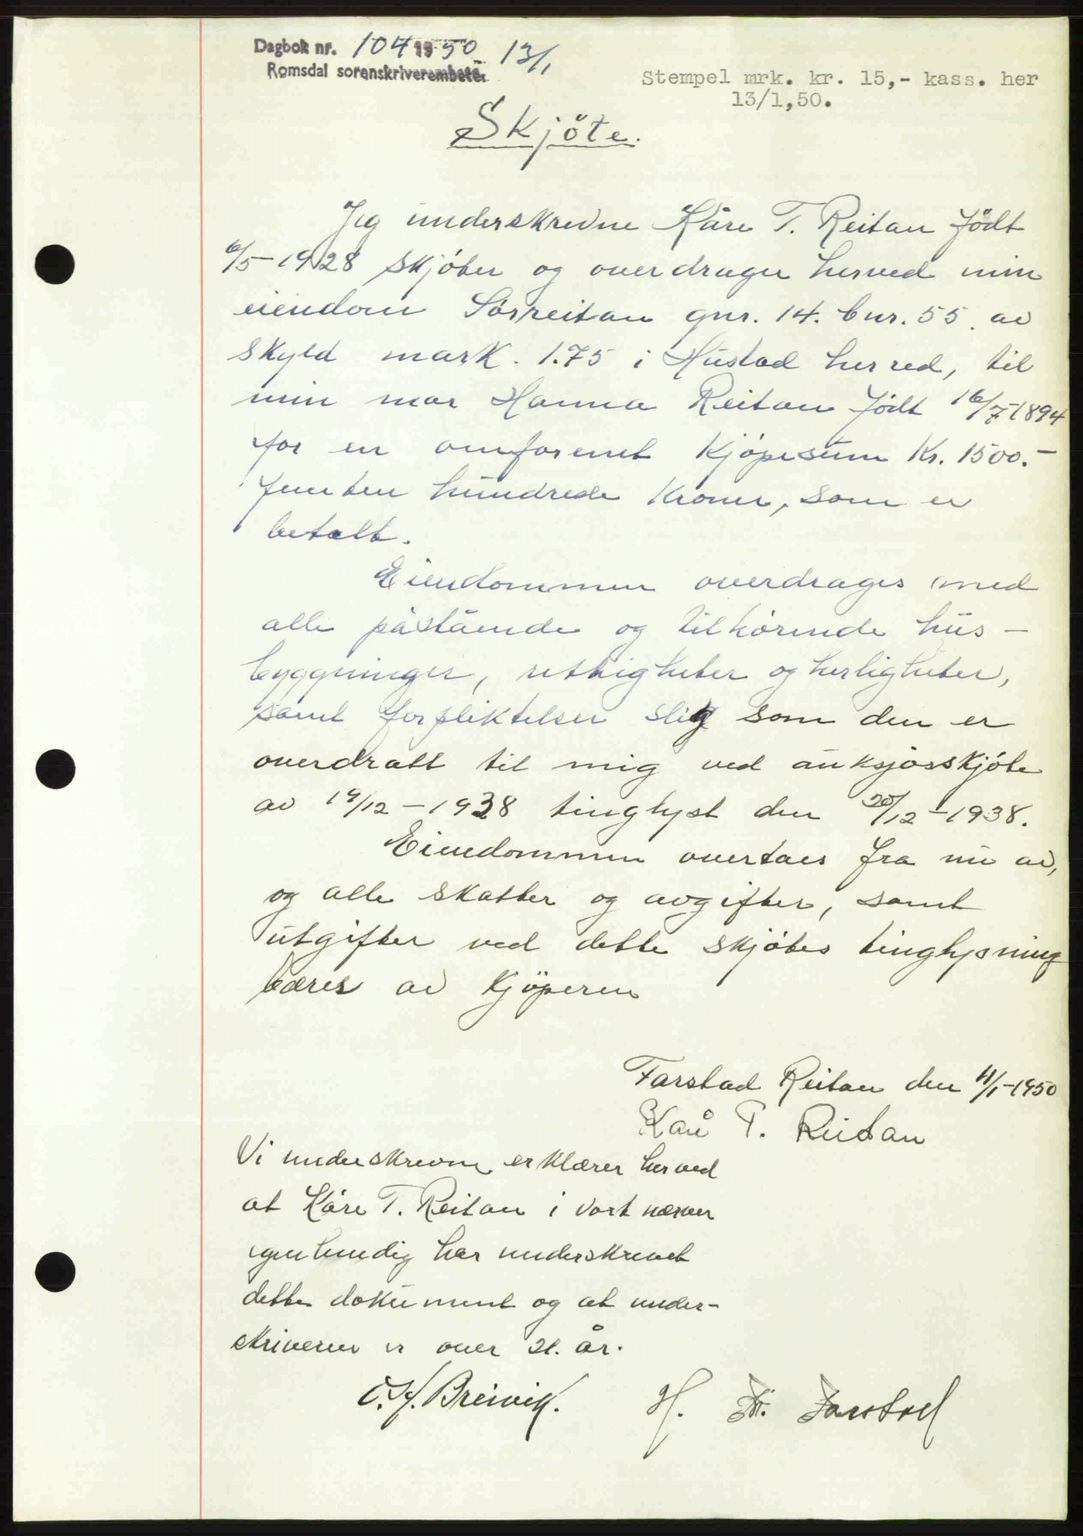 Dagbok nr. 104 1950 13/1
Romsdal sorenskriverembete.
Stempel mrk. kr. 15,- kass. her
13/1,50.
Skjöte.
Jeg underskrevne Kåre T. Reitan født
6/5-1928 skjöter og overdrager herved min
eiendom Sørreitan gnr. 14. bnr. 55. av
skyld mark. 1.75 i Hustad herred, til
min mor Hanna Reitan født 16/7-1894
for en omforenet kjöpesum kr. 1500.-
femten hundrede kroner, som er
betalt.
Eiendommen overdrages med
alle påstående og tilhørende hus-
byggninger, rettigheter og herligheter,
samt forpliktelser slig som den er
overdratt til mig ved auksjosskjöte
av 14/12-1938 tinglyst den 20/12-1938.
Eiendommen overtaes fra nu av,
og alle skatter og avgifter, samt
utgifter ved dette skjötes tinglysning
bæres av kjöperen
Farstad Reitan den 4/1-1950
Kåre T. Reitan
Vi underskrevne erklærer herved
at Kåre T. Reitan i vort nærver
egenhendig har underskrevet
dette dokument og at under-
skriveren er over 21. år.
O. H. Breivik. H. Farstad